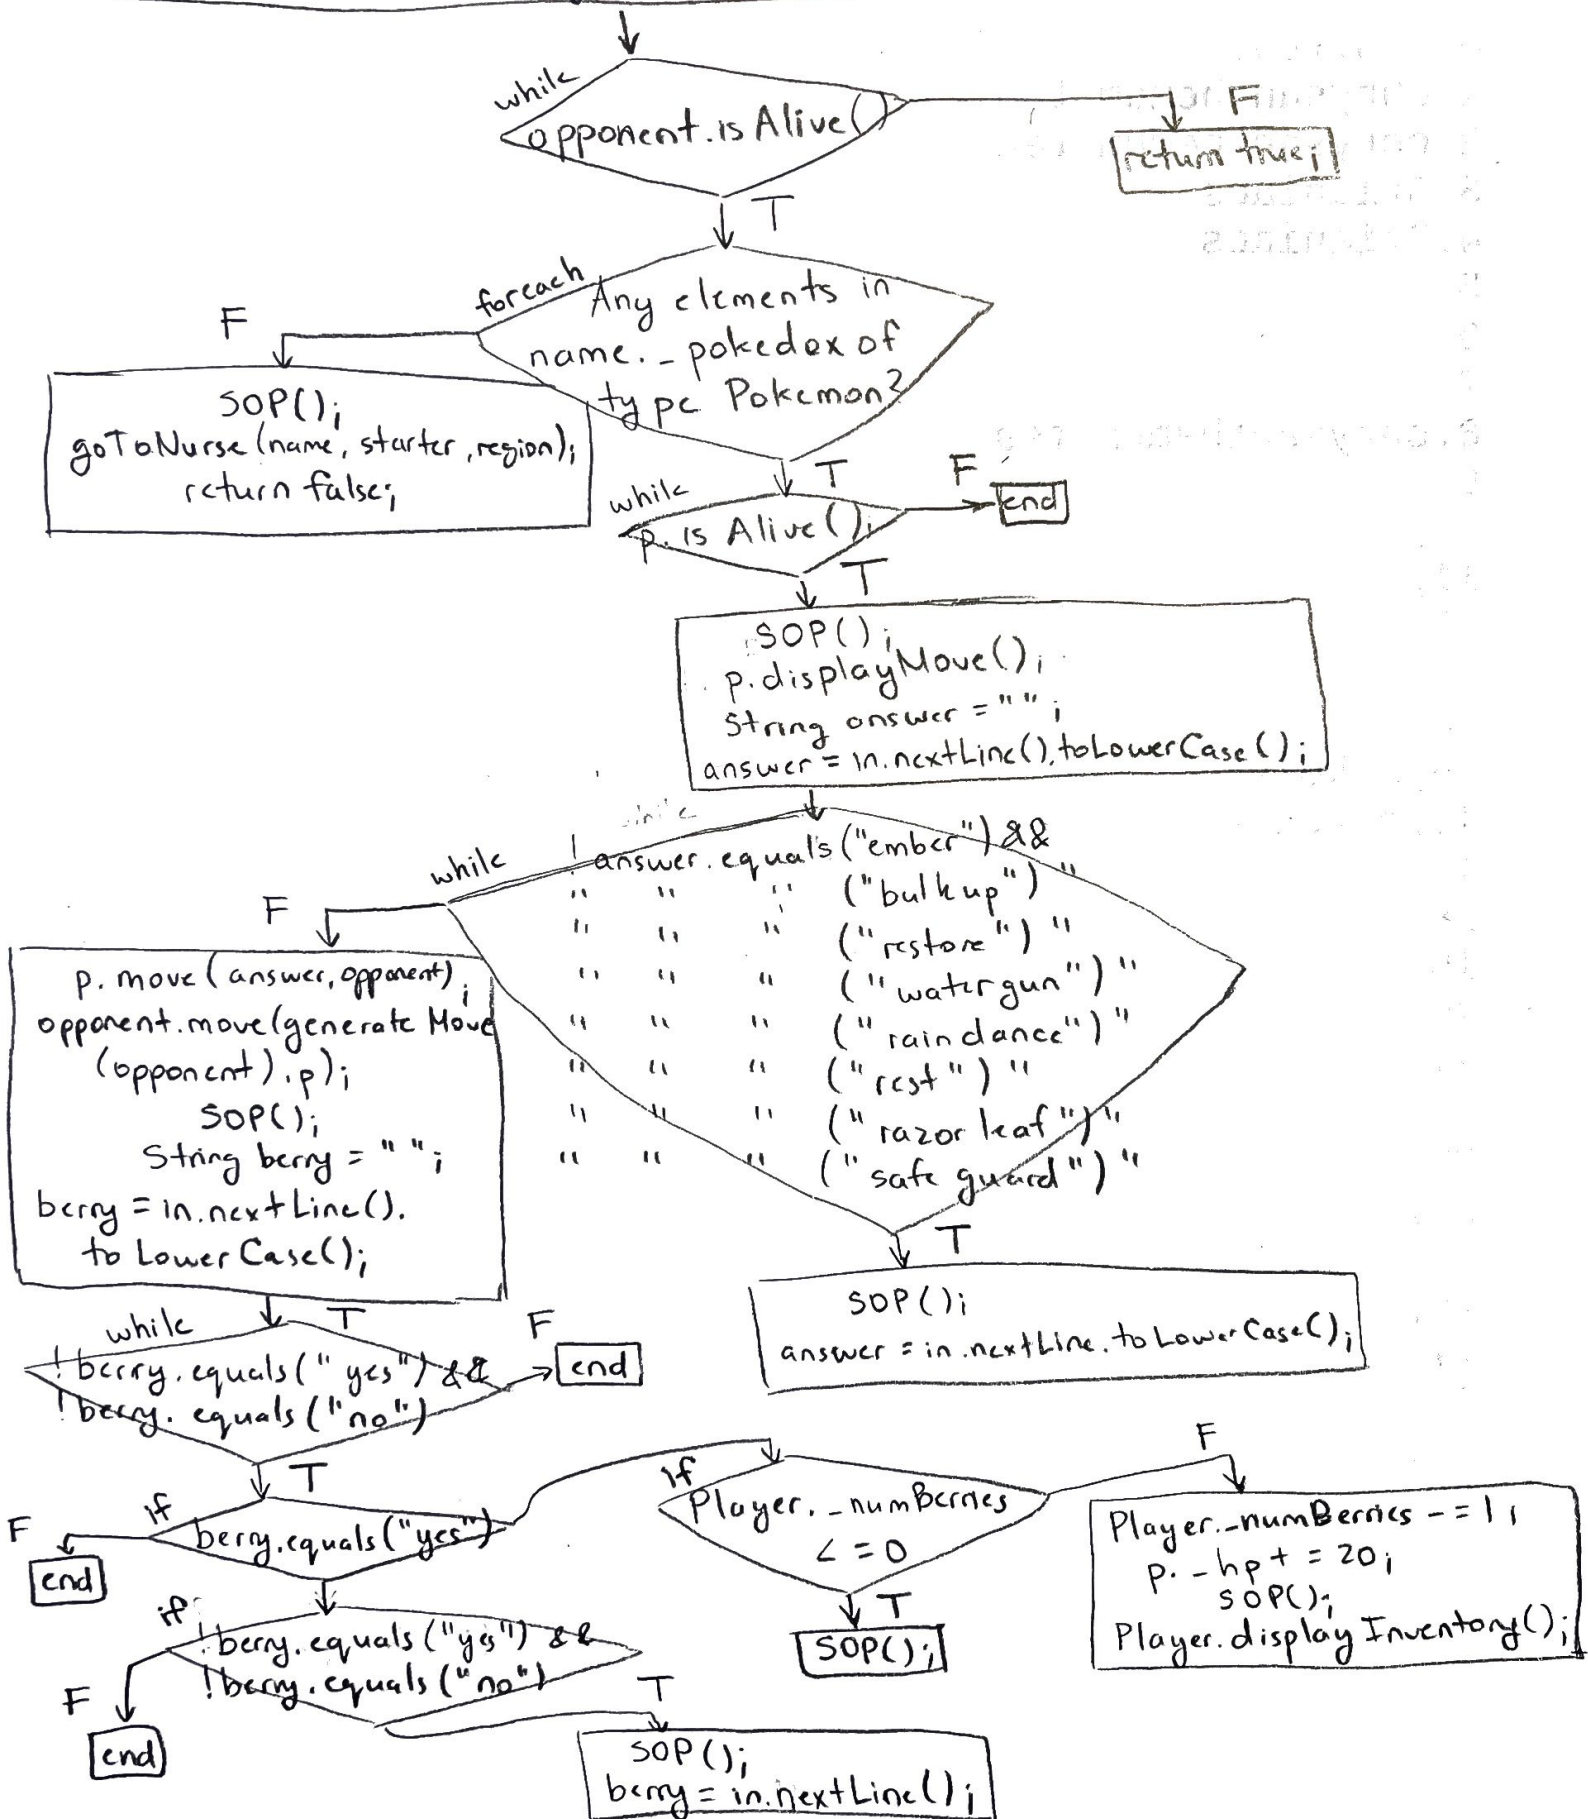 while
opponent.isAlive()
F
return true;
T
foreach
Any elements in
name._pokedex of
type Pokemon?
F
SOP();
goToNurse(name, starter, region);
return false;
T
while
p.isAlive();
F
end
T
SOP();
p.displayMove();
String answer = " ";
answer = in.nextLine().toLowerCase();
while
! answer.equals("ember") &&
" " " ("bulk up") "
" " " ("restore") "
" " " ("water gun") "
" " " ("rain dance") "
" " " ("rest") "
" " " ("razor leaf") "
" " " ("safe guard") "
F
p.move(answer, opponent);
opponent.move(generateMove
(opponent).p);
SOP();
String berry = " ";
berry = in.nextLine().
toLowerCase();
T
SOP();
answer = in.nextLine.toLowerCase();
while
T
! berry.equals("yes") &&
! berry.equals("no")
F
end
T
if
berry.equals("yes")
F
end
if
Player._numBerries
<=0
T
SOP();
F
Player._numBerries -= 1;
p._hp += 20;
SOP();
Player.displayInventory();
if
! berry.equals("yes") &&
! berry.equals("no")
F
end
T
SOP();
berry = in.nextLine();